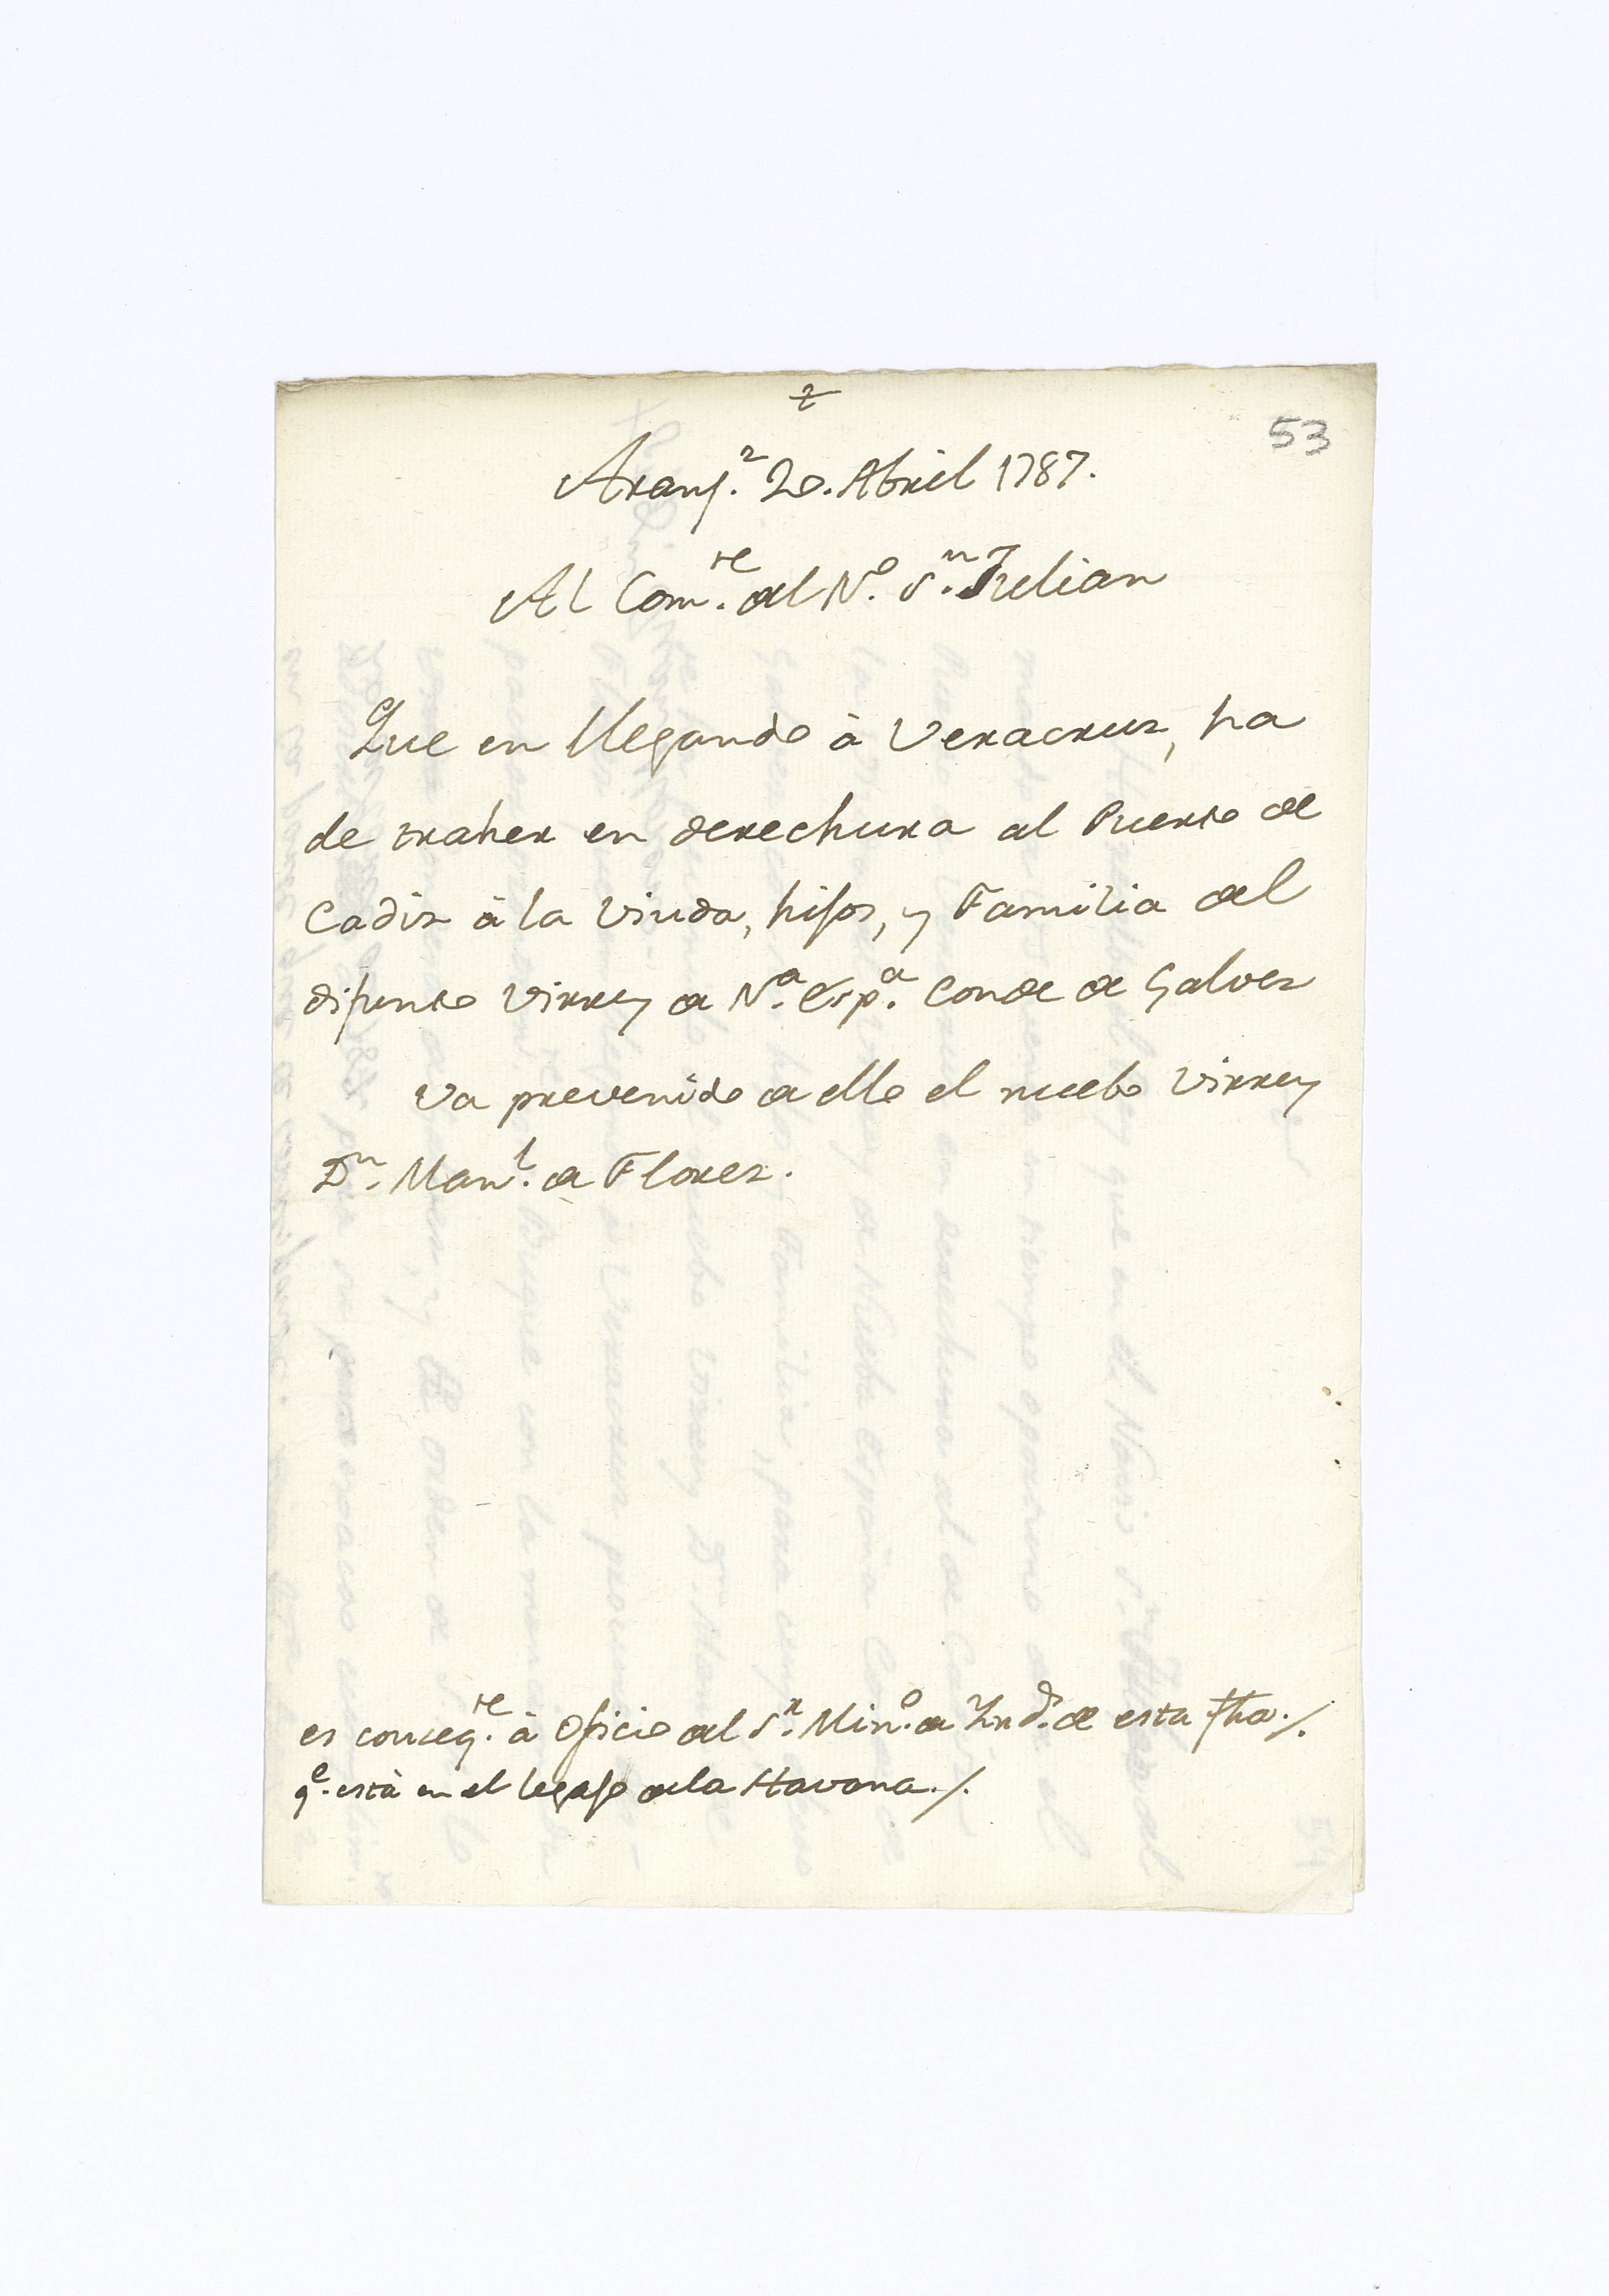 53
Aranj.z 20. Abril 1787.
Al Com.te del N.o S.n Julian
Que en llegando à Veracruz, ha
de traher en derechura al Puerto de
Cadiz à la Viuda, hijos, y Familia del
difunto Virrey de N.a Esp.a Conde de Galvez
Va prevenido de ello el nuebo Virrey
D.n Man.l de Florez.
es conseq.te à oficio del S.r Min.o de Ind.s de esta fha./.
q.e està en el legajo dela Havana./.